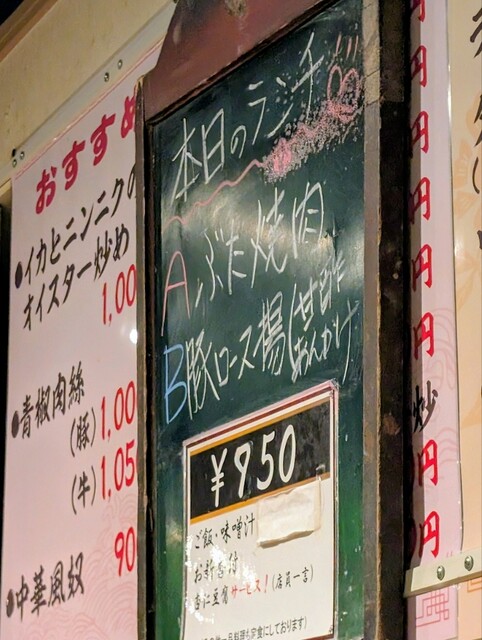 おすすめ
●イカとニンニクの
オイスター炒め
1,00
●青椒肉絲
(豚) 1,00
(牛) 1,05
●中華風奴 90
本日のランチ
A ぶた焼肉
B 豚ロース揚げ甘酢
あんかけ
¥950
ご飯・味噌汁
お新香付
杏仁豆腐サービス!(店員一言)
円
円
円
円
円
炒
円
円